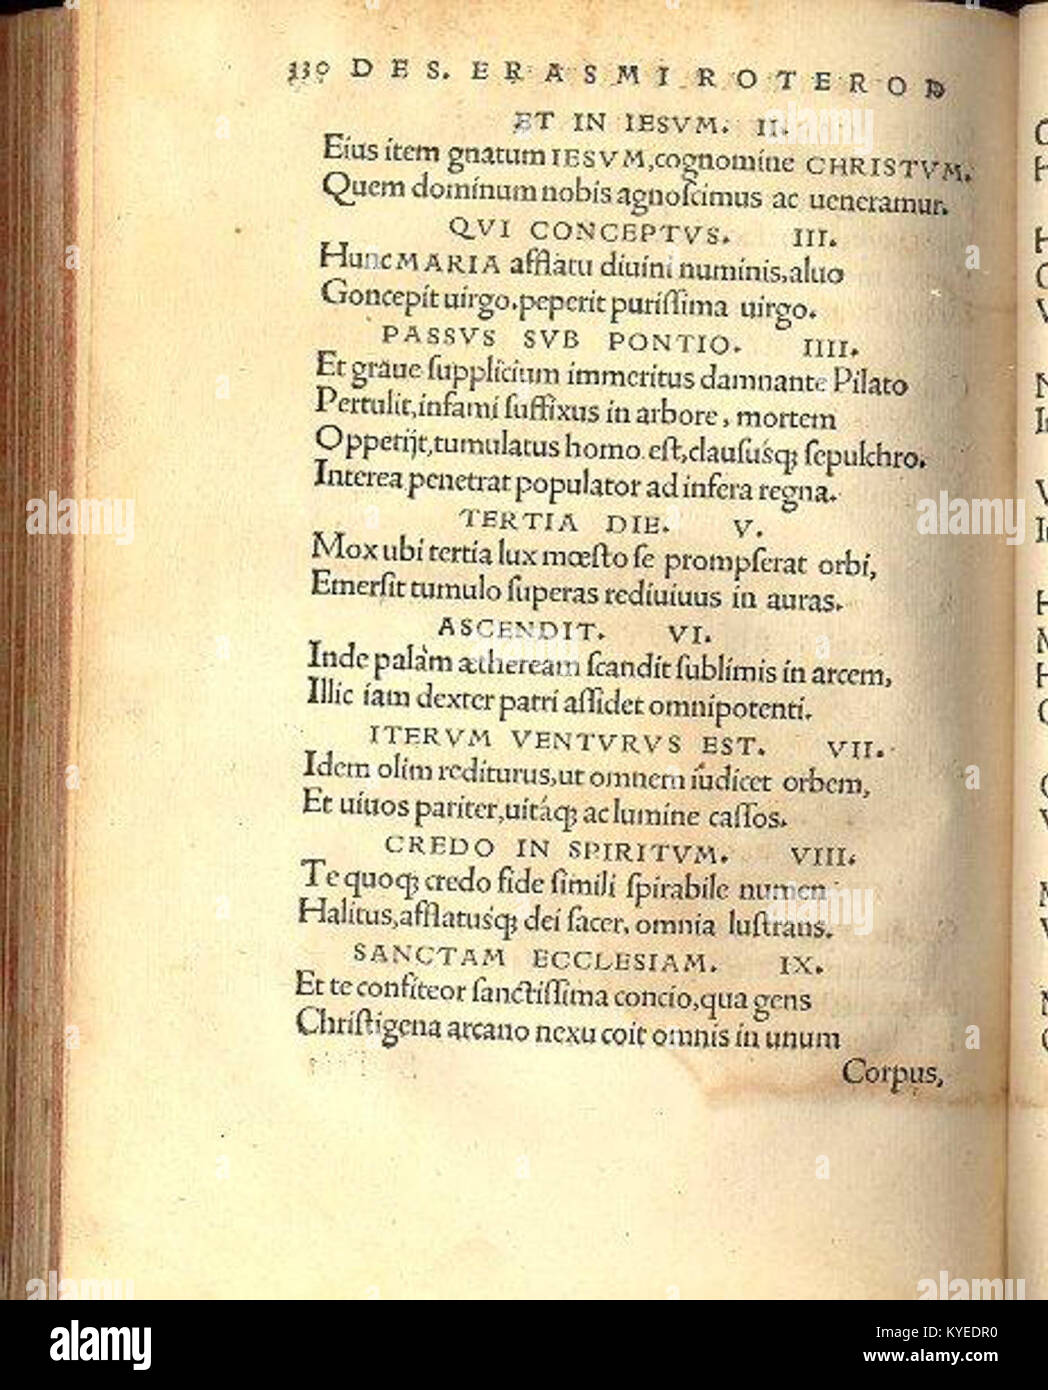 330 DES. ERASMI ROTEROD
ET IN IESVM. II.
Eius item gnatum IESVM, cognomine CHRISTVM.
Quem dominum nobis agnoſcimus ac ueneramur.
QVI CONCEPTVS. III.
Hunc MARIA afflatu diuini numinis, aluo
Goncepit uirgo, peperit puriſſima uirgo.
PASSVS SVB PONTIO. IIII.
Et graue ſupplicium immeritus damnante Pilato
Pertulit, infami ſuffixus in arbore, mortem
Oppetijt, tumulatus homo eſt, clauſusq; ſepulchro.
Interea penetrat populator ad infera regna.
TERTIA DIE. V.
Mox ubi tertia lux mœſto ſe prompſerat orbi,
Emerſit tumulo ſuperas rediuiuus in auras.
ASCENDIT. VI.
Inde palàm ætheream ſcandit ſublimis in arcem,
Illic iam dexter patri aſſidet omnipotenti.
ITERVM VENTVRVS EST. VII.
Idem olim rediturus, ut omnem iudicet orbem,
Et uiuos pariter, uitáq; ac lumine caſſos.
CREDO IN SPIRITVM. VIII.
Te quoq; credo fide ſimili ſpirabile numen
Halitus, afflatusq; dei ſacer, omnia luſtrans.
SANCTAM ECCLESIAM. IX.
Et te confiteor ſanctiſſima concio, qua gens
Chriſtigena arcano nexu coit omnis in unum
Corpus,
alamy
Image ID: KYEDR0
www.alamy.com